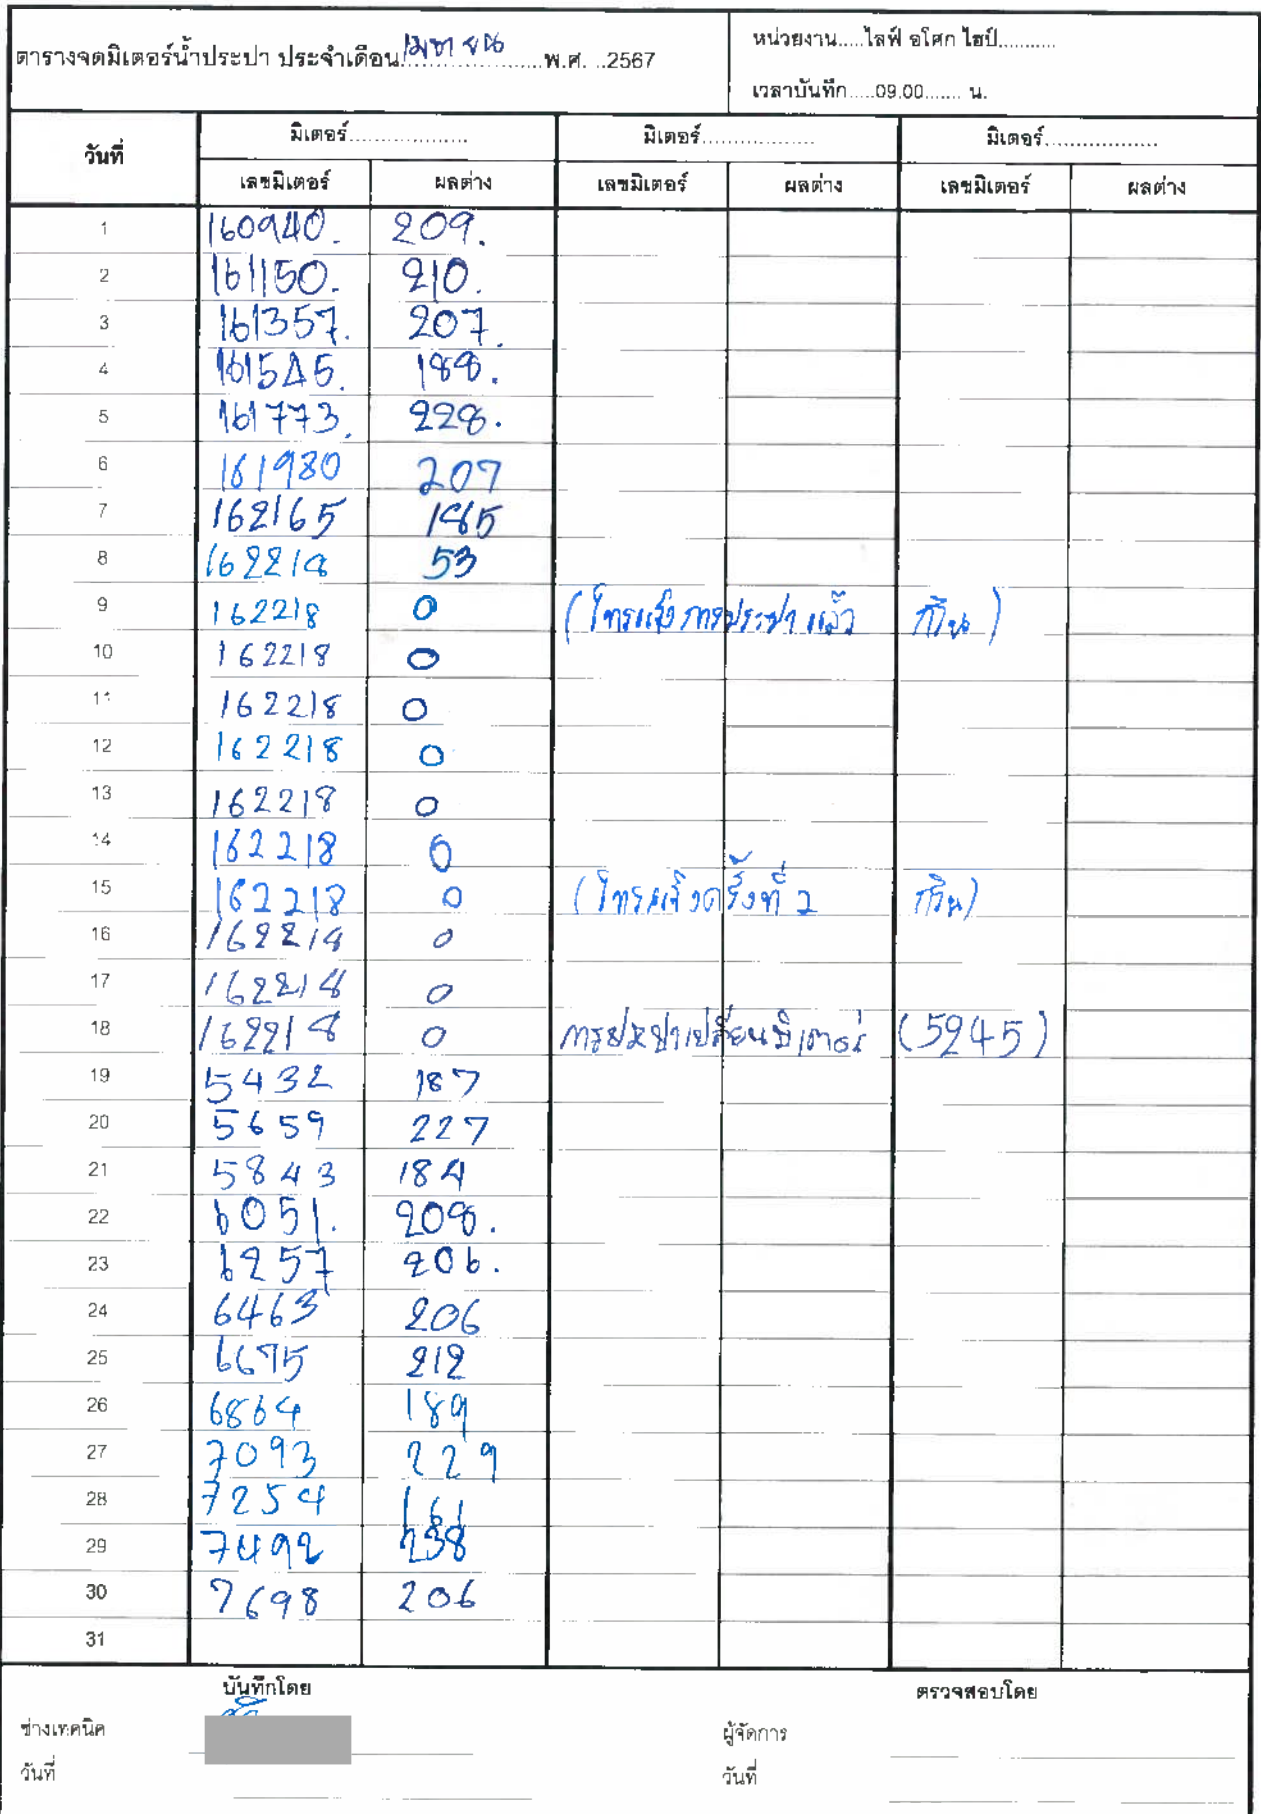 ตารางจดมิเตอร์น้ำประปา ประจำเดือน เมษายน พ.ศ. ..2567
หน่วยงาน.....ไลฟ์ อโศก ไฮป์...........
เวลาบันทึก.....09.00....... น.
วันที่ มิเตอร์.................... มิเตอร์.................. มิเตอร์..................
เลขมิเตอร์ ผลต่าง เลขมิเตอร์ ผลต่าง เลขมิเตอร์ ผลต่าง
1 160940. 209.
2 161150. 210.
3 161357. 207.
4 161545. 188.
5 161773. 228.
6 161980 207
7 162165 185
8 162218 53
9 162218 0 (โทรแจ้งการประปาแล้ว )
10 162218 0
11 162218 0
12 162218 0
13 162218 0
14 162218 0
15 162218 0 (โทรแจ้งครั้งที่ 2 )
16 162218 0
17 162218 0
18 162218 0 การประปาเปลี่ยนมิเตอร์ (5245)
19 5432 187
20 5659 227
21 5843 184
22 6051. 208.
23 6257 206.
24 6463 206
25 6675 212
26 6864 189
27 7093 229
28 7254 161
29 7492 238
30 7698 206
31
บันทึกโดย ตรวจสอบโดย
ช่างเทคนิค ผู้จัดการ
วันที่ วันที่